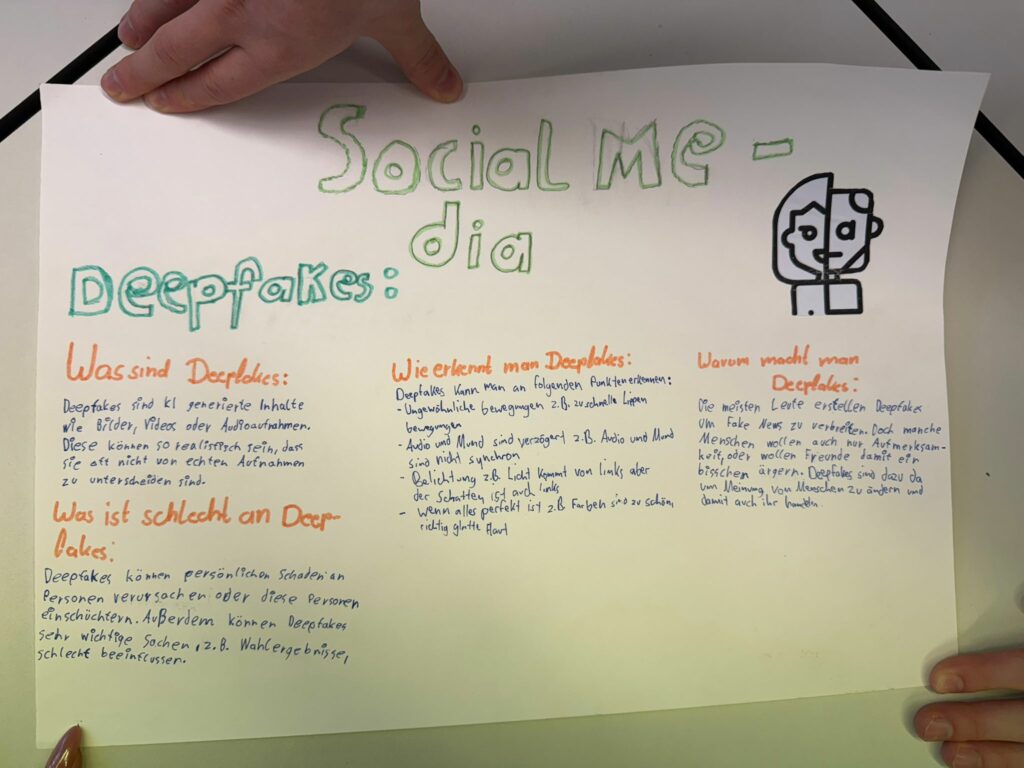 Social Me-
dia
Deepfakes:
Was sind Deepfakes:
Deepfakes sind KI generierte Inhalte
wie Bilder, Videos oder Audioaufnahmen.
Diese können so realistisch sein, dass
sie oft nicht von echten Aufnahmen
zu unterscheiden sind.
Was ist schlecht an Deep-
fakes:
Deepfakes können persönlichen Schaden an
Personen verursachen oder diese Personen
einschüchtern. Außerdem können Deepfakes
sehr wichtige Sachen, z.B. Wahlergebnisse,
schlecht beeinflussen.
Wie erkennt man Deepfakes:
Deepfakes kann man an folgenden Punkten erkennen:
- Ungewöhnliche bewegungen z.B. zu schnelle Lippen
bewegungen
- Audio und Mund sind verzögert z.B. Audio und Mund
sind nicht synchron
- Belichtung z.B. Licht kommt von links aber
der Schatten ist auch links
- wenn alles perfekt ist z.B. Farben sind zu schön,
richtig glatte Haut
Warum macht man
Deepfakes:
Die meisten Leute erstellen Deepfakes
um Fake News zu verbreiten. Doch manche
Menschen wollen auch nur Aufmerksam-
keit, oder wollen Freunde damit ein
bisschen ärgern. Deepfakes sind dazu da
um Meinung von Menschen zu ändern und
damit auch ihr handeln.